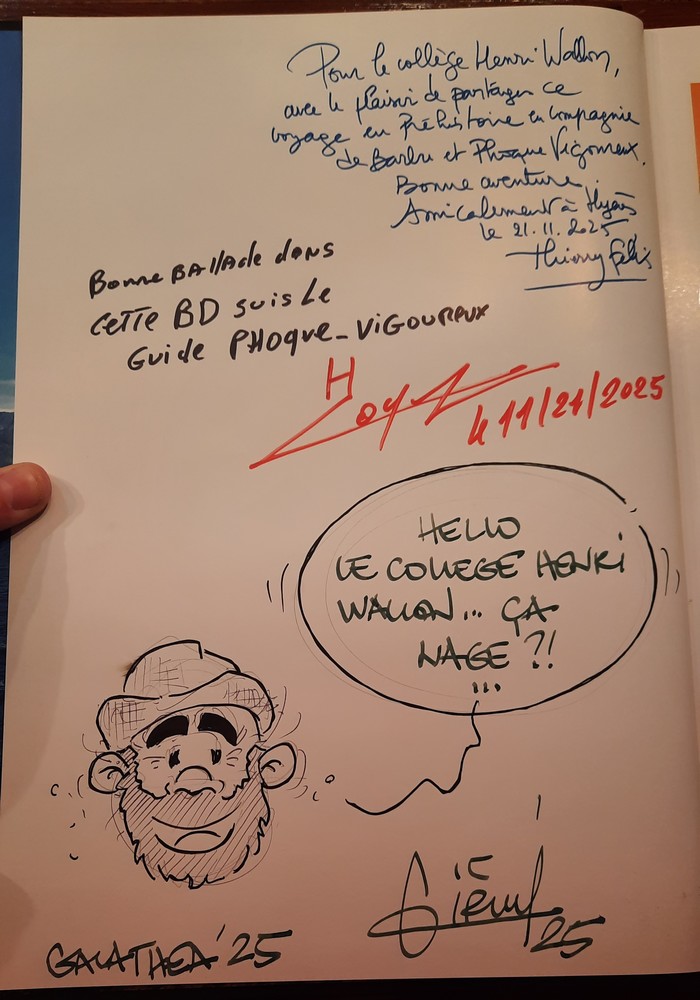 Pour le collège Henri Wallon,
avec le plaisir de partager ce
voyage en Préhistoire en compagnie
de Barbu et Phoque Vigoureux.
Bonne aventure.
Amicalement à Hyères
le 21.11.2025
Thierry Félix
Bonne BAllAde dans
CETTE BD suis Le
Guide PHOque-ViGOUREUX
le 11/21/2025
HELLO
LE COLLEGE HENRI
WALLON... ÇA
NAGE ?!
...
GALATHEA '25
25